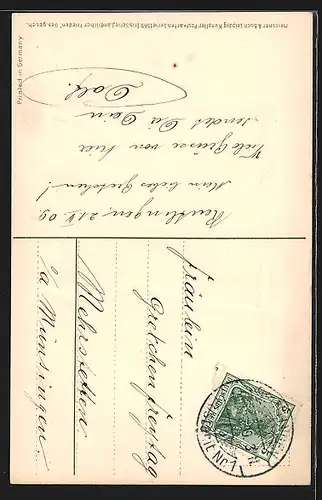 Meissner & Buch Leipzig Künstler-Postkarten Serie 1369 "Ländlicher Frieden" Ges. gesch.
Printed in Germany
Reutlingen, 21. V. 09
Mein liebes Gretchen!
Viele Grüsse von hier
sendet Dir Dein
Fräulein
Gretchen Freytag
Mehrstetten
b/ Münsingen.